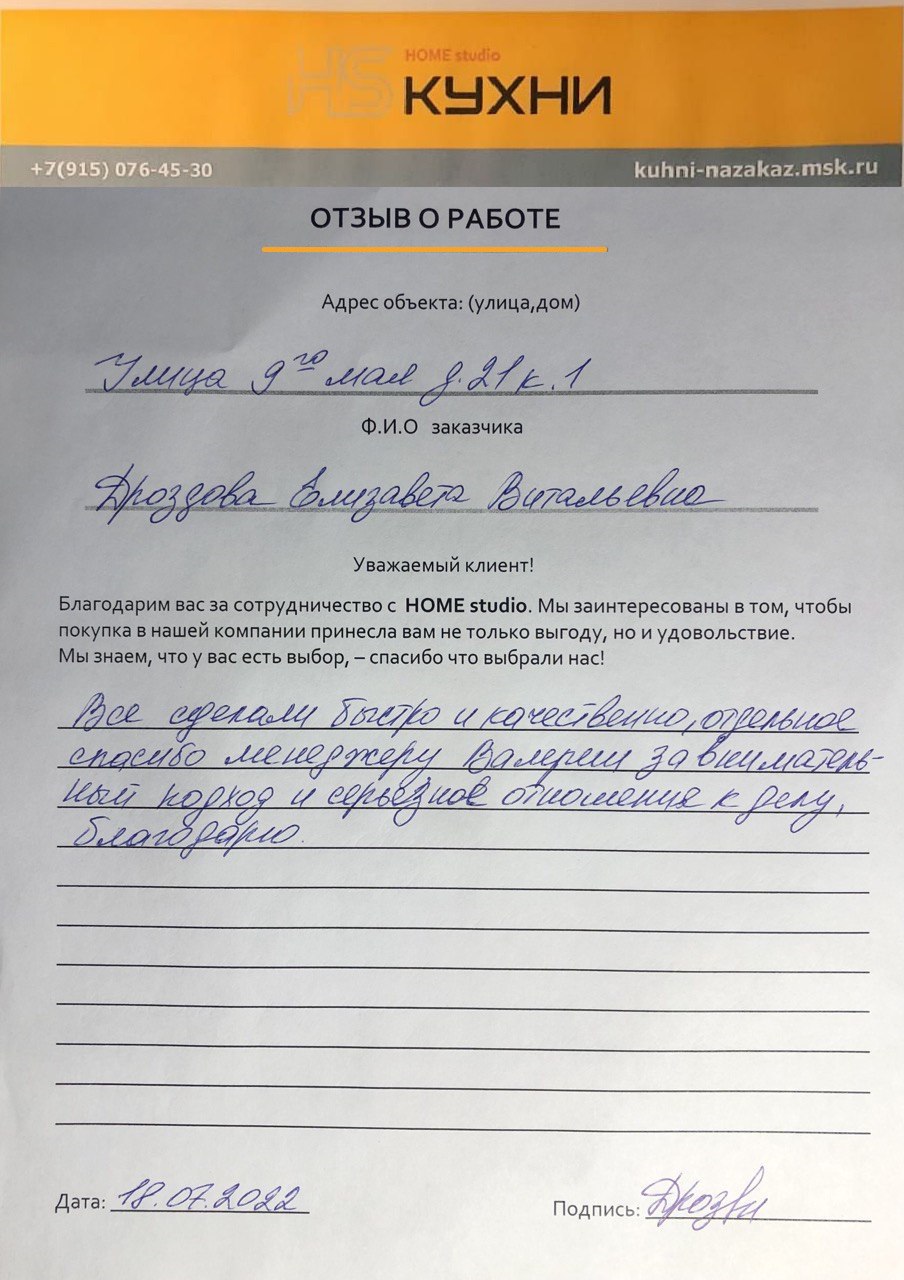 HS
HOME studio
КУХНИ
+7(915) 076-45-30
kuhni-nazakaz.msk.ru
ОТЗЫВ О РАБОТЕ
Адрес объекта: (улица,дом)
Улица 9го мая д.21 к.1
Ф.И.О заказчика
Дроздова Елизавета Витальевна
Уважаемый клиент!
Благодарим вас за сотрудничество с HOME studio. Мы заинтересованы в том, чтобы
покупка в нашей компании принесла вам не только выгоду, но и удовольствие.
Мы знаем, что у вас есть выбор, – спасибо что выбрали нас!
Все сделали быстро и качественно, отдельное
спасибо менеджеру Валерии за вниматель-
ный подход и серьезное отношение к делу,
благодарю.
Дата: 18.07.2022
Подпись: